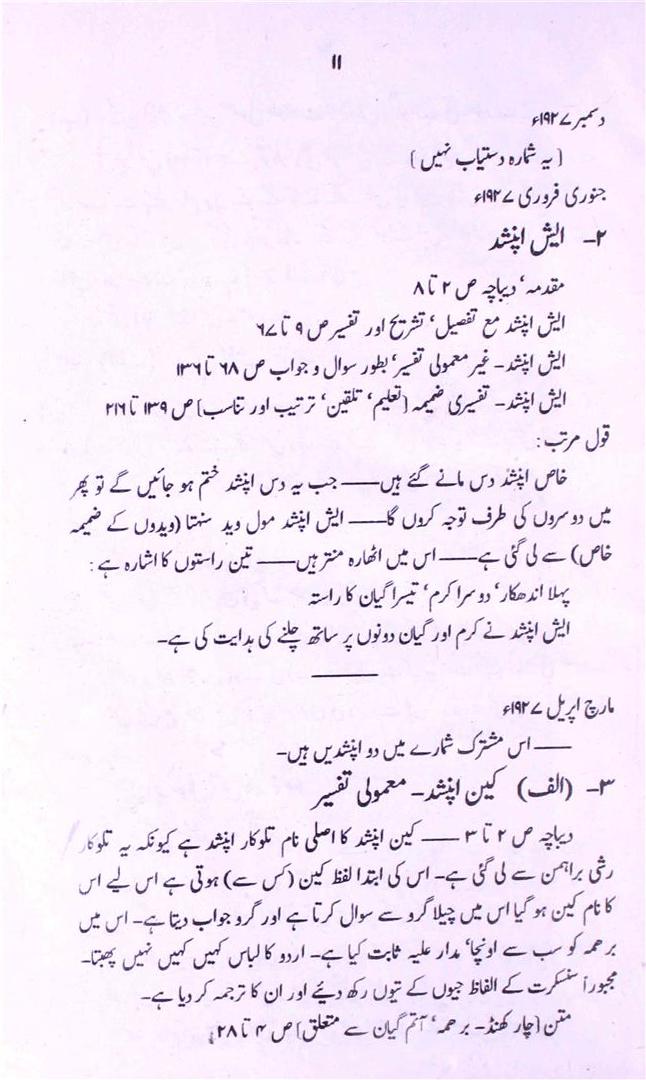 ۱۱
دسمبر ۱۹۲۷ء
( یہ شمارہ دستیاب نہیں )
جنوری فروری ۱۹۲۷ء
۲- ایش اپنشد
مقدمہ‘ دیباچہ ص ۲ تا ۸
ایش اپنشد مع تفصیل‘ تشریح اور تفسیر ص ۹ تا ۶۷
ایش اپنشد- غیر معمولی تفسیر‘ بطور سوال و جواب ص ۶۸ تا ۱۳۶
ایش اپنشد- تفسیری ضمیمہ (تعلیم‘ تلقین‘ ترتیب اور تناسب) ص ۱۳۹ تا ۲۱۶
قول مرتب :
خاص اپنشد دس مانے گئے ہیں—— جب یہ دس اپنشد ختم ہو جائیں گے تو پھر
میں دوسروں کی طرف توجہ کروں گا—— ایش اپنشد مول وید سنہتا (ویدوں کے ضمیمہ
خاص) سے لی گئی ہے—— اس میں اٹھارہ منتر ہیں—— تین راستوں کا اشارہ ہے :
پہلا اندھکار‘ دوسرا کرم‘ تیسرا گیان کا راستہ
ایش اپنشد نے کرم اور گیان دونوں پر ساتھ چلنے کی ہدایت کی ہے-
مارچ اپریل ۱۹۲۷ء
—— اس مشترک شمارے میں دو اپنشدیں ہیں-
۳- (الف) کین اپنشد- معمولی تفسیر
دیباچہ ص ۲ تا ۳ —— کین اپنشد کا اصلی نام تلوکار اپنشد ہے کیونکہ یہ تلوکار
رشی براہمن سے لی گئی ہے- اس کی ابتدا لفظ کین (کس سے) ہوتی ہے اس لیے اس
کا نام کین ہو گیا اس میں چیلا گرو سے سوال کرتا ہے اور گرو جواب دیتا ہے- اس میں
برحمہ کو سب سے اونچا‘ مدار علیہ ثابت کیا ہے- اردو کا لباس کہیں کہیں نہیں پھبتا-
مجبوراً سنسکرت کے الفاظ جیوں کے تیوں رکھ دیئے اور ان کا ترجمہ کر دیا ہے-
متن (چار کھنڈ- برحمہ‘ آتم گیان سے متعلق) ص ۴ تا ۲۸